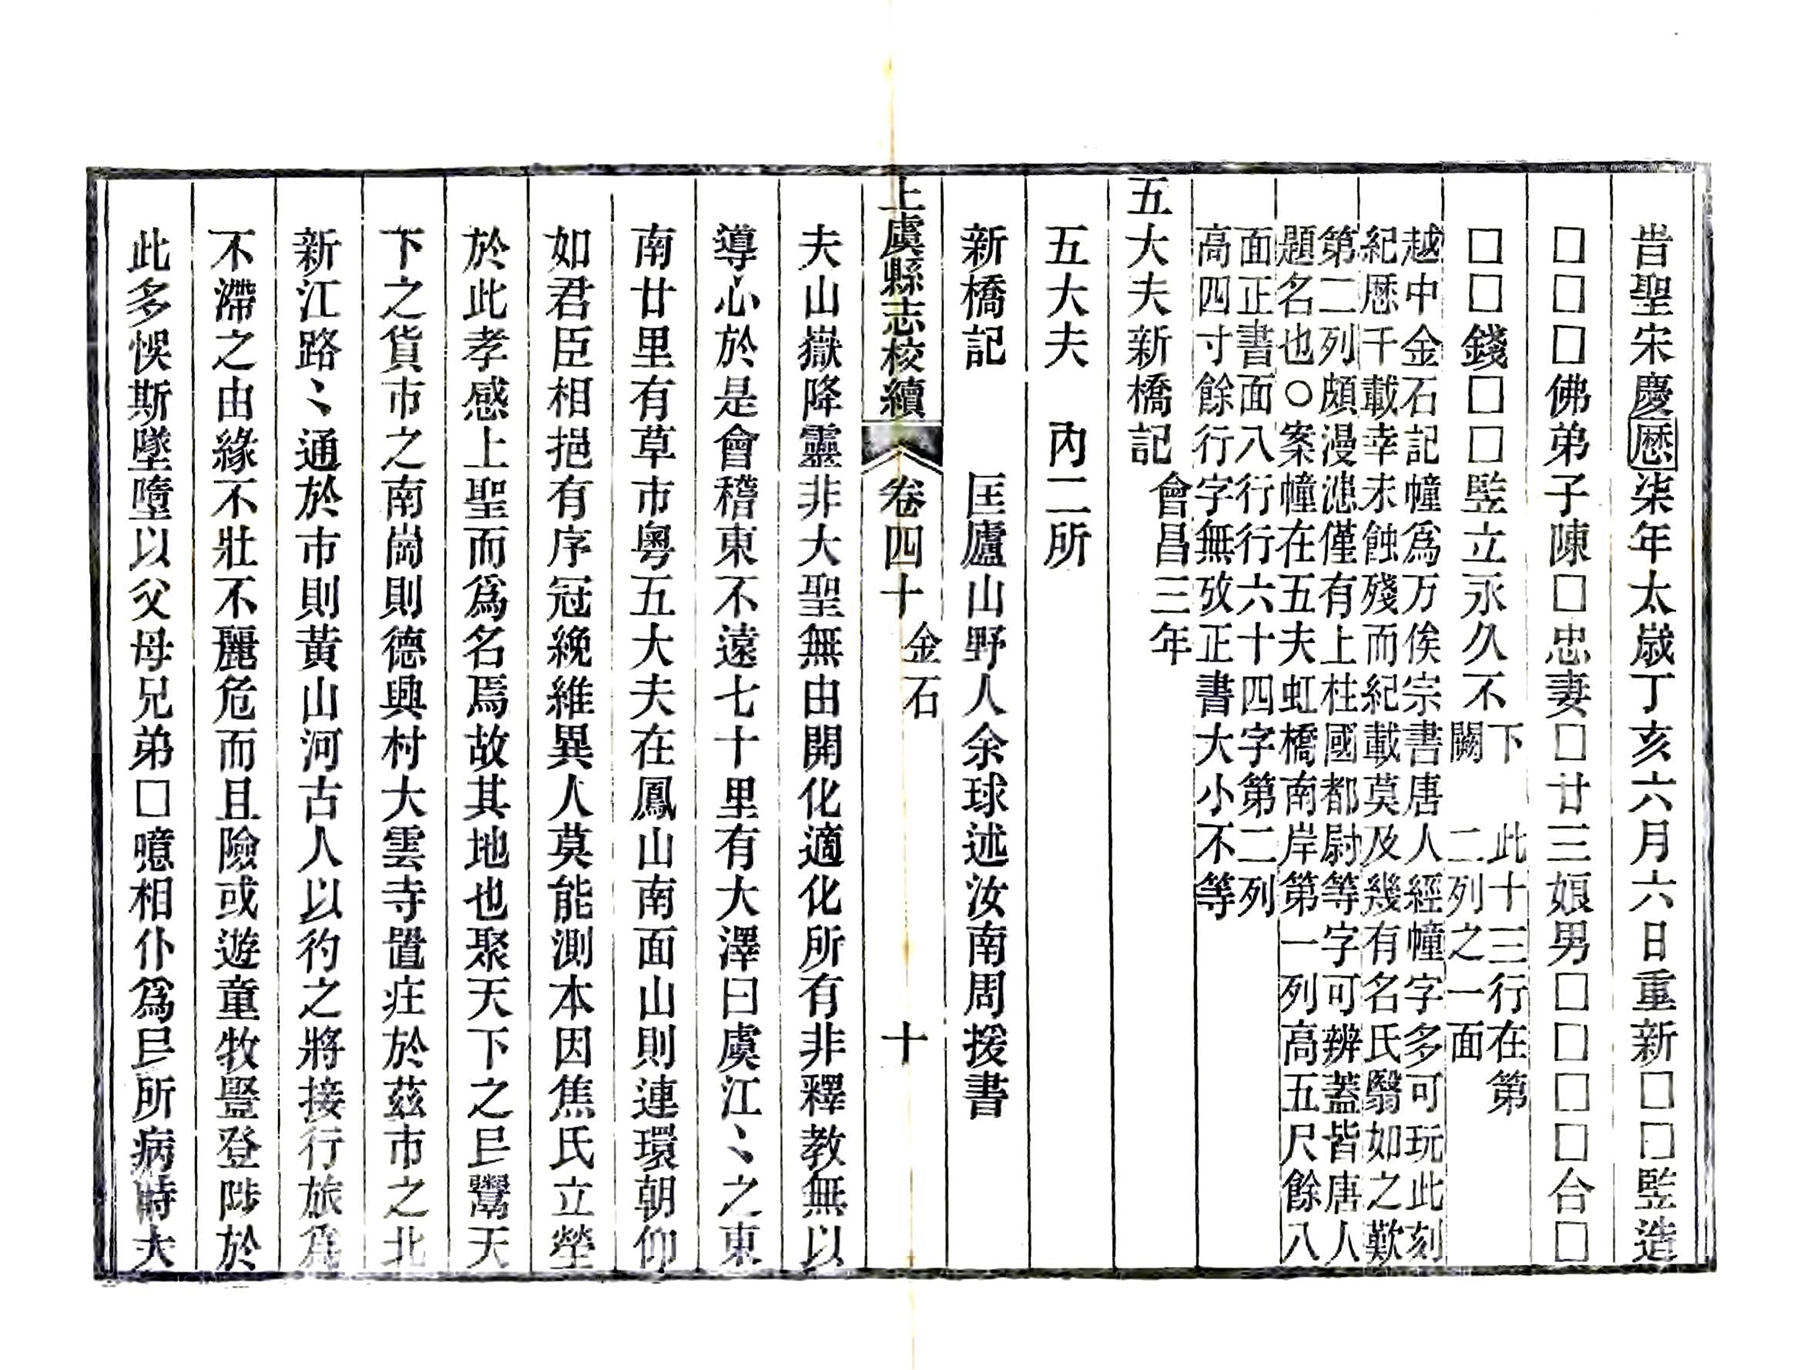 旹聖宋慶厯柒年太歲丁亥六月六日重新□□監造
□□□佛弟子陳□忠妻□廿三娘男□□□□合□
□□錢□□監立永久不
下　此十三行在第
闕　二列之一面
越中金石記幢爲万俟宗書唐人經幢字多可玩此刻
紀厯千載幸未蝕殘而紀載莫及幾有名氏翳如之歎
第二列頗漫漶僅有上柱國都尉等字可辨蓋皆唐人
題名也○案幢在五夫虹橋南岸第一列高五尺餘八
面正書面八行行六十四字第二列
高四寸餘行字無攷正書大小不等
五大夫新橋記 會昌三年
五大夫　內二所
新橋記　匡廬山野人余球述汝南周援書
上虞縣志校續 卷四十 金石 十
夫山嶽降靈非大聖無由開化適化所有非釋教無以
導心於是會稽東不遠七十里有大澤曰虞江〻之東
南廿里有草市粤五大夫在鳳山南面山則連環朝仰
如君臣相挹有序冠絻維異人莫能測本因焦氏立塋
於此孝感上聖而爲名焉故其地也聚天下之㠯鬻天
下之貨市之南崗則德興村大雲寺置庄於茲市之北
新江路〻通於市則黃山河古人以彴之將接行旅爲
不滯之由緣不壯不麗危而且險或遊童牧豎登陟於
此多悞斯墜墮以父母兄弟□噫相仆爲㠯所病時大